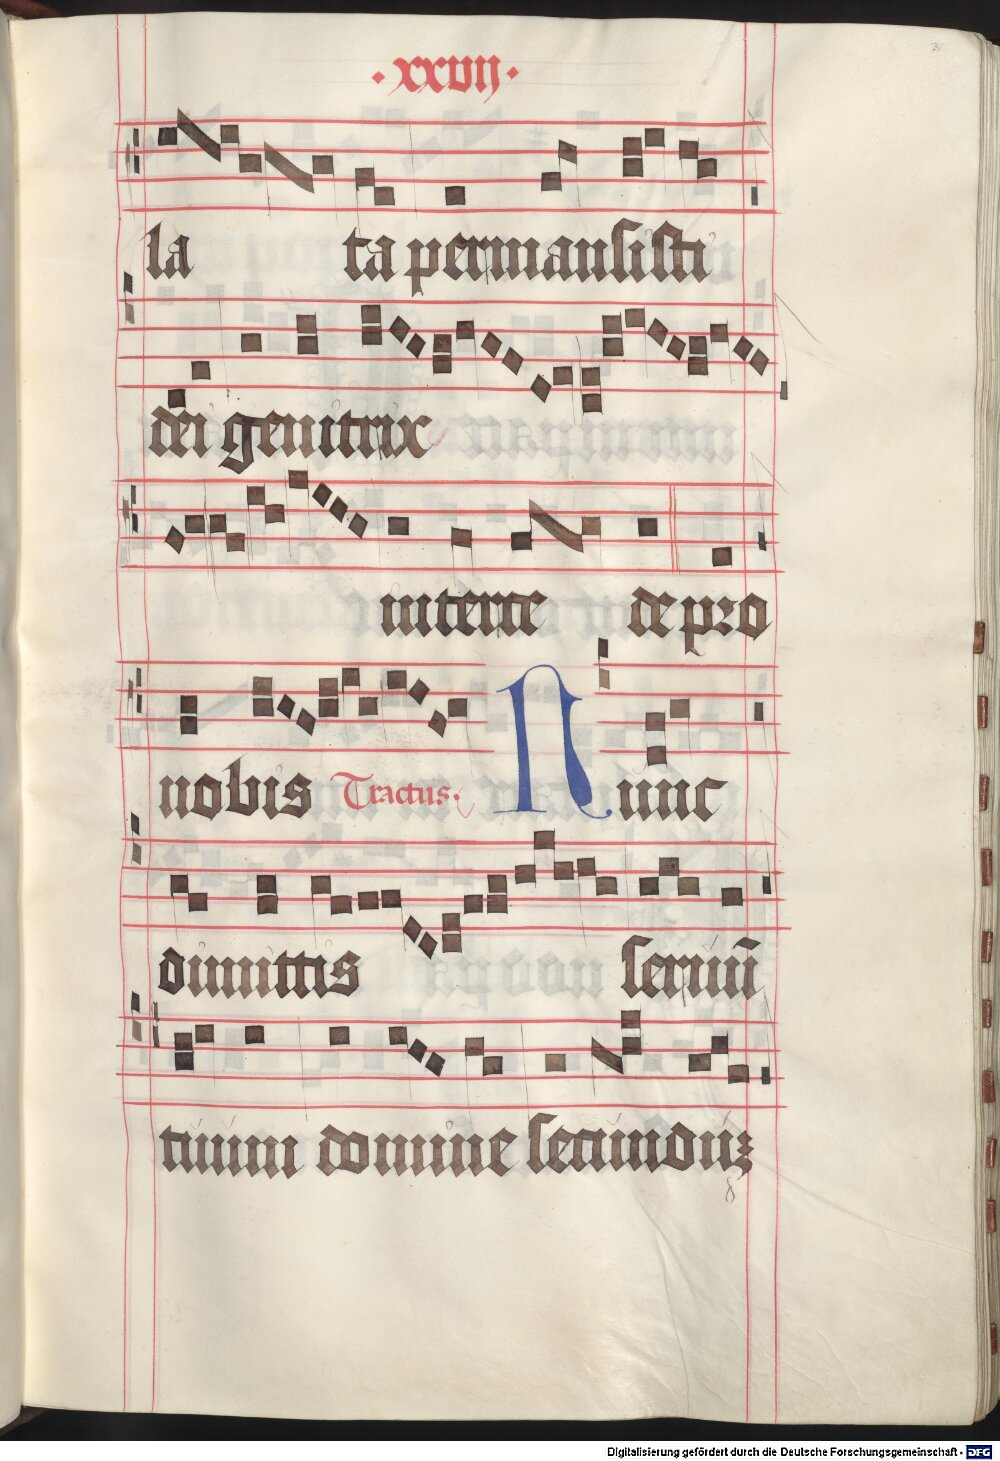 · xxvij ·
31
la ta permansisti
dei genitrix
interce de pro
nobis Tractus. Nunc
dimittis seruū
tuum domine secunduʒ
Digitalisierung gefördert durch die Deutsche Forschungsgemeinschaft - DFG